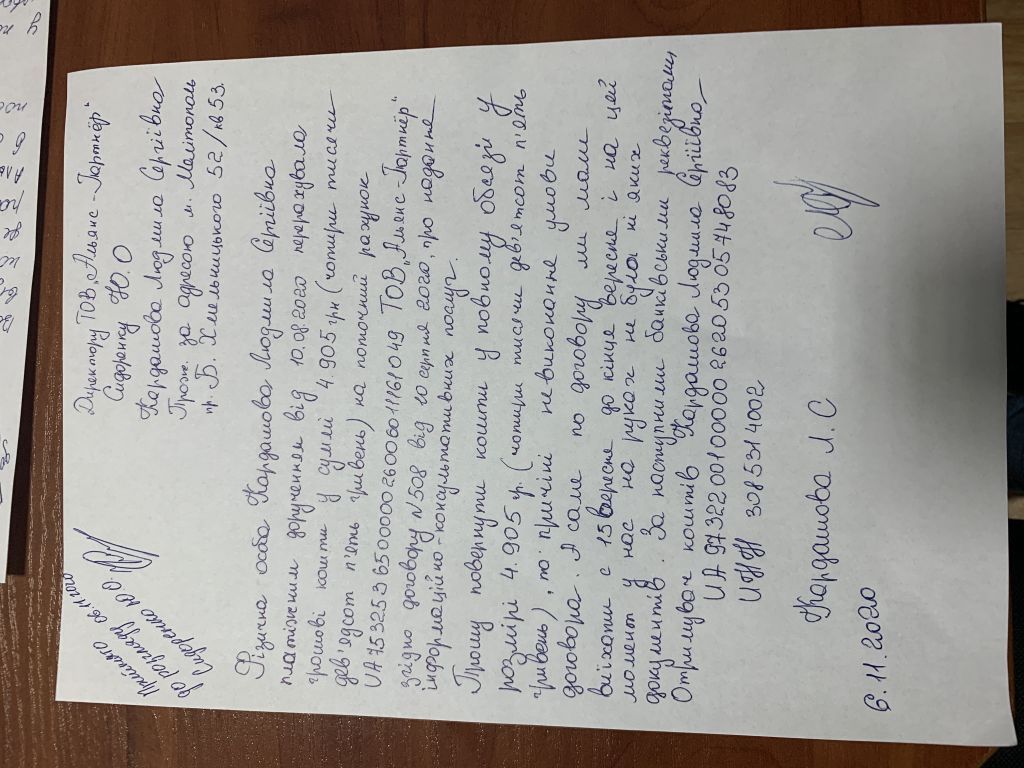 Прийнято 06.11.2020
до розгляду
Сидоренко Ю.О
Директору ТОВ„Альянс-Партнёр"
Сидоренку Ю.О
Кардашова Людмила Сергіївна
Прож. за адресою м. Мелітополь
пр. Б. Хмельницького 52/кв 53
Фізична особа Кардашова Людмила Сергіївна
платіжним дорученням від 10.08.2020 перерахувала
грошові кошти у суммі 4.905 грн (чотири тисячи
дев'ядсот п'ять гривень) на поточний рахунок
UA753253650000002600601176 1049 ТОВ„Альянс-Партнёр"
згідно договору №508 від 10 серпня 2020, про надання
інформаційно-консультативних послуг.
Прошу повернути кошти у повному обсязі у
розмірі 4.905 гр. (чотири тисячи девятсот п'ять
гривень), по причині невиконання умови
договора. А саме по договору ми мали
виїхати с 15 вересня до кінця вересня і на цей
момент у нас на руках не було ні яких
документів. За наступними банківськими реквезітами
Отримувач коштів Кардашова Людмила Сергіївна
UA 973220010000026205305748083
ИНН 3085314002
Кардашова Л.С
6.11.2020